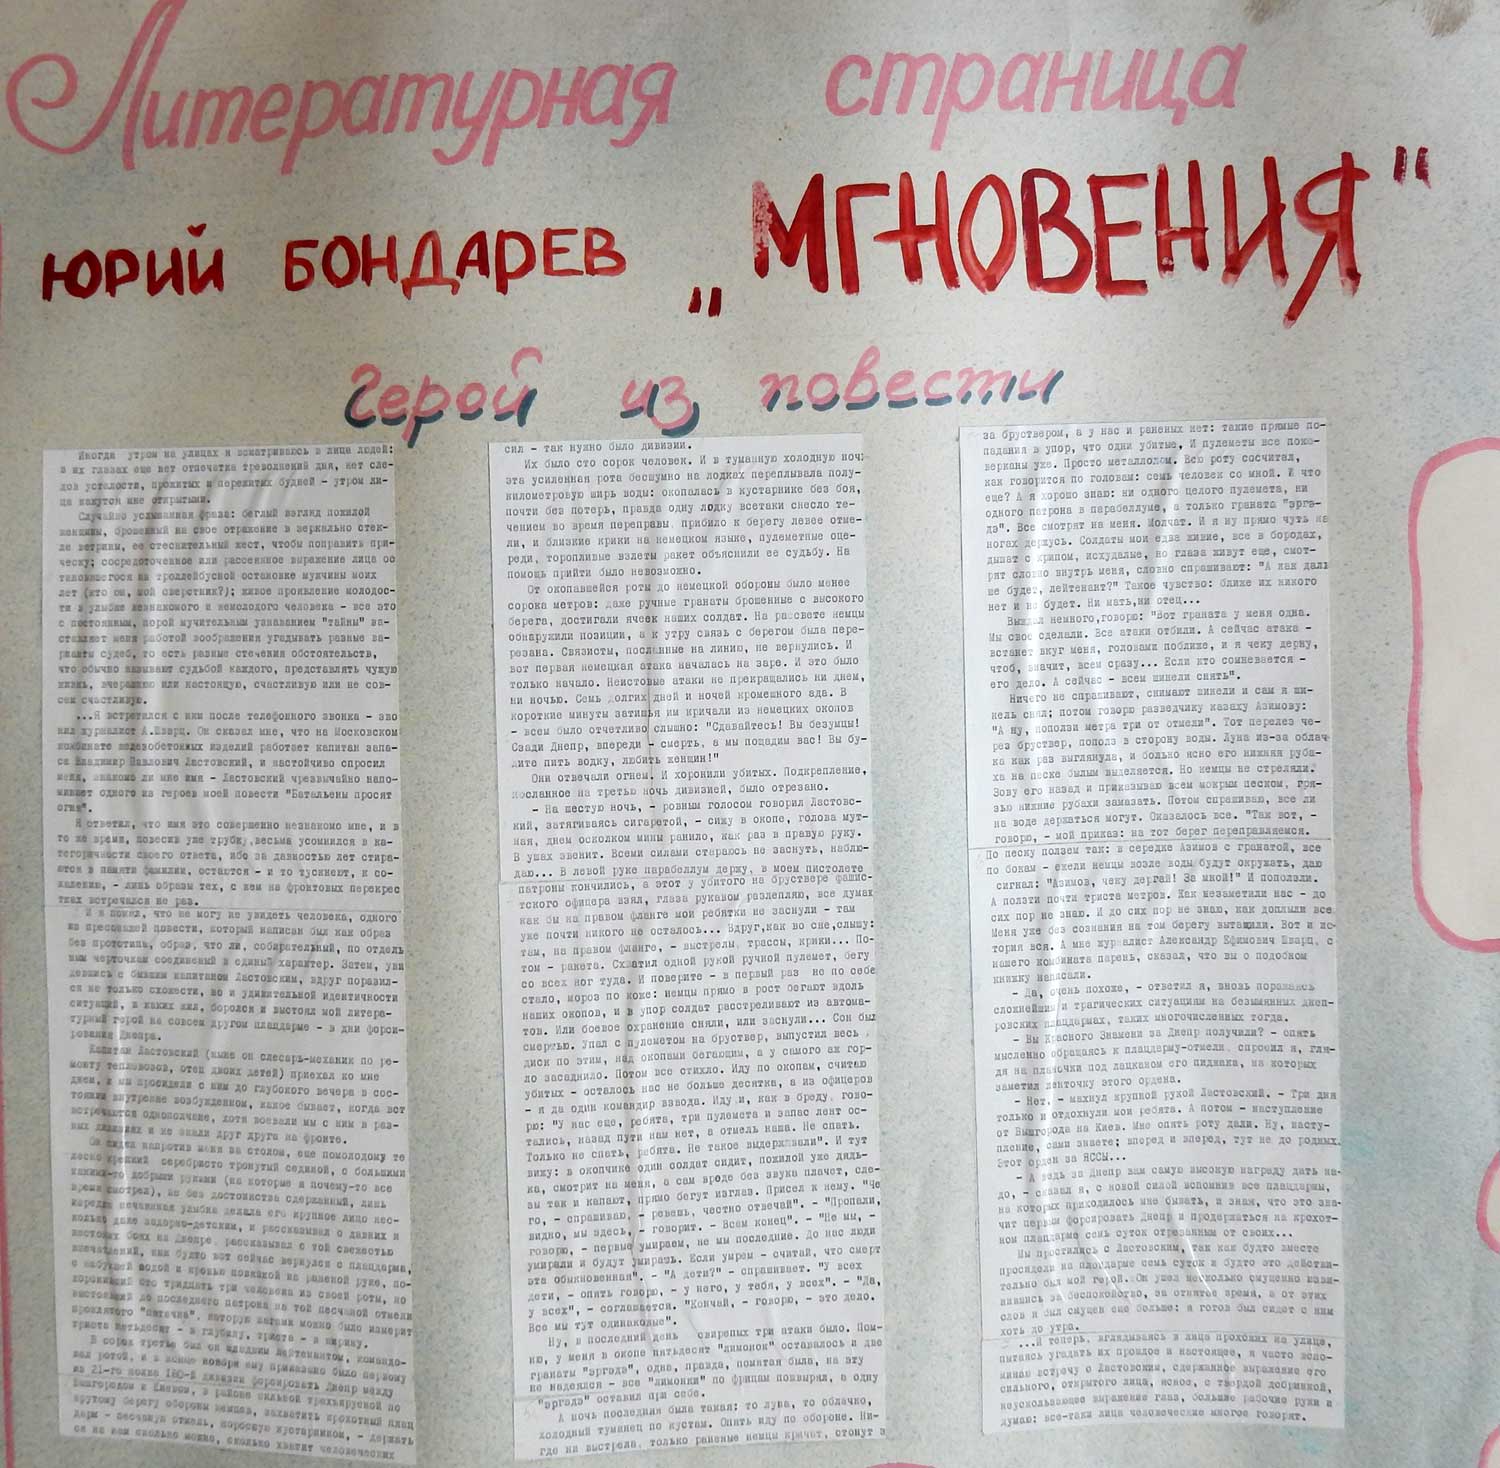 Литературная страница
ЮРИЙ БОНДАРЕВ „МГНОВЕНИЯ"
Герой из повести
Иногда утром на улицах я всматриваюсь в лица людей:
в их глазах еще нет отпечатка треволнений дня, нет сле-
дов усталости, прожитых и пережитых будней - утром ли-
ца кажутся мне открытыми.
Случайно услышанная фраза: беглый взгляд пожилой
женщины, брошенный на свое отражение в зеркально стек-
ле витрины, ее стеснительный жест, чтобы поправить при-
ческу; сосредоточенное или рассеянное выражение лица ос
тановившегося на троллейбусной остановке мужчины моих
лет (кто он, мой сверстник?); живое проявление молодос-
ти в улыбке незнакомого и немолодого человека - все это
с постоянным, порой мучительным узнаванием "тайны" за-
ставляет меня работой воображения угадывать разные ва-
рианты судеб, то есть разные стечения обстоятельств,
что обычно называют судьбой каждого, представлять чужую
жизнь, вчерашнюю или настоящую, счастливую или не сов-
сем счастливую.
...Я встретился с ним после телефонного звонка - зво
нил журналист А.Шварц. Он сказал мне, что на Московском
комбинате железобетонных изделий работает капитан запа-
са Владимир Павлович Ластовский, и настойчиво спросил
меня, знакомо ли мне имя - Ластовский чрезвычайно напо-
минает одного из героев моей повести "Батальоны просят
огня".
Я ответил, что имя это совершенно незнакомо мне, и в
то же время, повесив уже трубку,весьма усомнился в ка-
тегоричности своего ответа, ибо за давностью лет стира-
ются в памяти фамилии, остаются - и то тускнеют, к со-
жалению, - лишь образы тех, с кем на фронтовых перекрес
тках встречался не раз.
И я понял, что не могу не увидеть человека, одного
из прессовшей повести, который написан был как образ
без прототипа, образ, что ли, собирательный, по отдель
ным черточкам соединенный в единый характер. Затем, уви
девшись с бывшим капитаном Ластовским, вдруг поразил-
ся не только схожести, но и удивительной идентичности
ситуаций, в каких жил, боролся и выстоял мой литера-
турный герой на совсем другом плацдарме - в дни форси-
рования Днепра.
Капитан Ластовский (ныне он слесарь-механик по ре-
монту тепловозов, отец двоих детей) приехал ко мне
днем, и мы просидели с ним до глубокого вечера в сос-
тоянии внутренне возбужденном, какое бывает, когда вот
встречаются однополчане, хотя воевали мы с ним в раз-
ных дивизиях и не знали друг друга на фронте.
Он сидел напротив меня за столом, еще помолодому те
леско крепкий серебристо тронутый сединой, с большими
какими-то добрыми руками (на которые я почему-то все
время смотрел), не без достоинства сдержанный, лишь
изредка нечаянная улыбка делала его крупное лицо нес-
колько даже задорно-детским, и рассказывал о давних и
жестоких боях на Днепре, рассказывал с той свежестью
впечатлений, как будто вот сейчас вернулся с плацдарма,
с набухшей водой и кровью повязкой на раненой руке, по-
хоронивший сто тридцать три человека из своей роты, но
выстоявший до последнего патрона на той песчаной отмели
проклятого "пятачка", которую шагами можно было измерить
триста пятьдесят - в глубину, триста - в ширину.
В сорок третьем был он младшим лейтенантом, командо-
вал ротой, и в конце ноября ему приказано было первому
из 21-го полка 180-й дивизии форсировать Днепр между
Вышгородом и Киевом, в районе сильной трехъярусной по
крутому берегу обороны немцев, захватить крохотный плац
дарм - песчаную отмель, поросшую кустарником, - держать
ся на нем сколько можно, сколько хватит человеческих
сил - так нужно было дивизии.
Их было сто сорок человек. И в туманную холодную ночь
эта усиленная рота бесшумно на лодках переплывала полу-
километровую ширь воды: окопалась в кустарнике без боя,
почти без потерь, правда одну лодку всетаки снесло те-
чением во время переправы, прибило к берегу левее отме-
ли, и близкие крики на немецком языке, пулеметные оце-
реди, торопливые взлеты ракет объяснили ее судьбу. На
помощь прийти было невозможно.
От окопавшейся роты до немецкой обороны было менее
сорока метров: даже ручные гранаты брошенные с высокого
берега, достигали ячеек наших солдат. На рассвете немцы
обнаружили позиции, а к утру связь с берегом была пере-
резана. Связисты, посланные на линию, не вернулись. И
вот первая немецкая атака началась на заре. И это было
только начало. Неистовые атаки не прекращались ни днем,
ни ночью. Семь долгих дней и ночей кромешного ада. В
короткие минуты затишья им кричали из немецких окопов
- всем было отчетливо слышно: "Сдавайтесь! Вы безумцы!
Сзади Днепр, впереди - смерть, а мы пощадим вас! Вы бу-
дите пить водку, любить женщин!"
Они отвечали огнем. И хоронили убитых. Подкрепление,
посланное на третью ночь дивизией, было отрезано.
- На шестую ночь, - ровным голосом говорил Ластовс-
кий, затягиваясь сигаретой, - сижу в окопе, голова мут-
ная, днем осколком мины ранило, как раз в правую руку.
В ушах звенит. Всеми силами стараюсь не заснуть, наблю-
даю... В левой руке парабеллум держу, в моем пистолете
патроны кончились, а этот у убитого на бруствере фашис-
тского офицера взял, глаза рукавом разлепляю, все думаю
как бы на правом фланге мои ребятки не заснули - там
уже почти никого не осталось... Вдруг,как во сне,слышу:
там, на правом фланге, - выстрелы, трассы, крики... По-
том - ракета. Схватил одной рукой ручной пулемет, бегу
со всех ног туда. И поверите - в первый раз не по себе
стало, мороз по коже: немцы прямо в рост бегают вдоль
наших окопов, и в упор солдат расстреливают из автома-
тов. Или боевое охранение сняли, или заснули... Сон был
смертью. Упал с пулеметом на бруствер, выпустил весь
диск по этим, над окопами бегающим, а у самого аж гор-
ло засаднило. Потом все стихло. Иду по окопам, считаю
убитых - осталось нас не больше десятка, а из офицеров
- я да один командир взвода. Иду и, как в бреду, гово-
рю: "У нас еще, ребята, три пулемета и запас лент ос-
тались, назад пути нам нет, а отмель наша. Не спать.
Только не спать, ребята. Не такое выдерживали". И тут
вижу: в окопчике один солдат сидит, пожилой уже дядь-
ка, смотрит на меня, а сам вроде без звука плачет, сле-
зы так и капают, прямо бегут изглаз. Присел к нему. "Че
го, - спрашиваю, - ревешь, честно отвечай". - "Пропали,
видно, мы здесь, - говорит. - Всем конец". - "Не мы, -
говорю, - первые умираем, не мы последние. До нас люди
умирали и будут умирать. Если умрем - считай, что смерт
эта обыкновенная". - "А дети?" - спрашивает. "У всех
дети, - опять говорю, - у него, у тебя, у всех". - "Да,
у всех", - соглашается. "Кончай, - говорю, - это дело.
Все мы тут одинаковые".
Ну, в последний день свирепых три атаки было. Пом-
ню, у меня в окопе пятьдесят "лимонок" оставалось и две
гранаты "эргэдэ", одна, правда, помятая была, на эту
не надеялся - все "лимонки" по фрицам пошвырял, а одну
"эргэдэ" оставил при себе.
А ночь последняя была такая: то луна, то облачко,
холодный туманец по кустам. Опять иду по обороне. Ни-
где ни выстрела, только раненые немцы кричат, стонут з
за бруствером, а у нас и раненых нет: такие прямые по-
падания в упор, что одни убитые, И пулеметы все поко-
верканы уже. Просто металлолом. Всю роту сосчитал,
как говорится по головам: семь человек со мной. И что
еще? А я хорошо знаю: ни одного целого пулемета, ни
одного патрона в парабеллуме, а только граната "эргэ-
дэ". Все смотрят на меня. Молчат. И я ну прямо чуть на
ногах держусь. Солдаты мои едва живые, все в бородах,
дышат с хрипом, исхудалые, но глаза живут еще, смот-
рят словно внутрь меня, словно спрашивают: "А как даль
ше будет, лейтенант?" Такое чувство: ближе их никого
нет и не будет. Ни мать,ни отец...
Выждал немного,говорю: "Вот граната у меня одна.
Мы свое сделали. Все атаки отбили. А сейчас атака -
встанет вкуг меня, головами поближе, и я чеку дерну,
чтоб, значит, всем сразу... Если кто сомневается -
его дело. А сейчас - всем шинели снять".
Ничего не спрашивают, снимают шинели и сам я ши-
нель снял; потом говорю разведчику казаху Азимову:
"А ну, поползи метра три от отмели". Тот перелез че-
рез бруствер, пополз в сторону воды. Луна из-за облач
ка как раз выглянула, и больно ясно его нижняя руба-
ха на песке былым выделяется. Но немцы не стреляли.
Зову его назад и приказываю всем мокрым песком, гря-
зью нижние рубахи замазать. Потом спрашиваю, все ли
на воде держаться могут. Оказалось все. "Так вот, -
говорю, - мой приказ: на тот берег переправляемся.
По песку ползем так: в середке Азимов с гранатой, все
по бокам - ежели немцы возле воды будут окружать, даю
сигнал: "Азимов, чеку дергай! За мной!" И поползли.
А ползти почти триста метров. Как незаметили нас - до
сих пор не знаю. И до сих пор не знаю, как доплыли все
Меня уже без сознания на том берегу вытащили. Вот и ис-
тория вся. А мне журналист Александр Ефимович Шварц, с
нашего комбината парень, сказал, что вы о подобном
книжку написали.
- Да, очень похоже, - ответил я, вновь поражаясь
сложнейшим и трагических ситуациям на безымянных днеп-
ровских плацдармах, таких многочисленных тогда.
- Вы Красного Знамени за Днепр получили? - опять
мысленно обращаясь к плацдарму-отмели, спросил я, гля-
дя на планочки под лацканом его пиджака, на которых
заметил ленточку этого ордена.
- Нет, - махнул крупной рукой Ластовский. - Три дня
только и отдохнули мои ребята. А потом - наступление
от Вышгорода на Киев. Мне опять роту дали. Ну, насту-
пление, сами знаете; вперед и вперед, тут не до родных.
Этот орден за ЯССЫ...
- А ведь за Днепр вам самую высокую награду дать на-
до, - сказал я, с новой силой вспомнив все плацдармы,
на которых приходилось мне бывать, и зная, что это зна-
чит первым форсировать Днепр и продержаться на крохот-
ном плацдарме семь суток отрезанным от своих...
Мы простились с Ластовским, так как будто вместе
просидели на плацдарме семь суток и будто это действи-
тельно был мой герой. Он ушел несколько смущенно изви-
нившись за беспокойство, за отнятое время, а от этих
слов я был смущен еще больше: я готов был сидет с ним
хоть до утра.
...И теперь, вглядываясь в лица прохожих на улице,
пытаясь угадать их правдое и настоящее, я часто вспо-
минаю встречу с Ластовским, сдержанное выражение его
сильного, открытого лица, ясное, с твердой добринкой,
неускользающее выражение глаз, большие рабочие руки и
думаю: все-таки лица человеческие многое говорят.